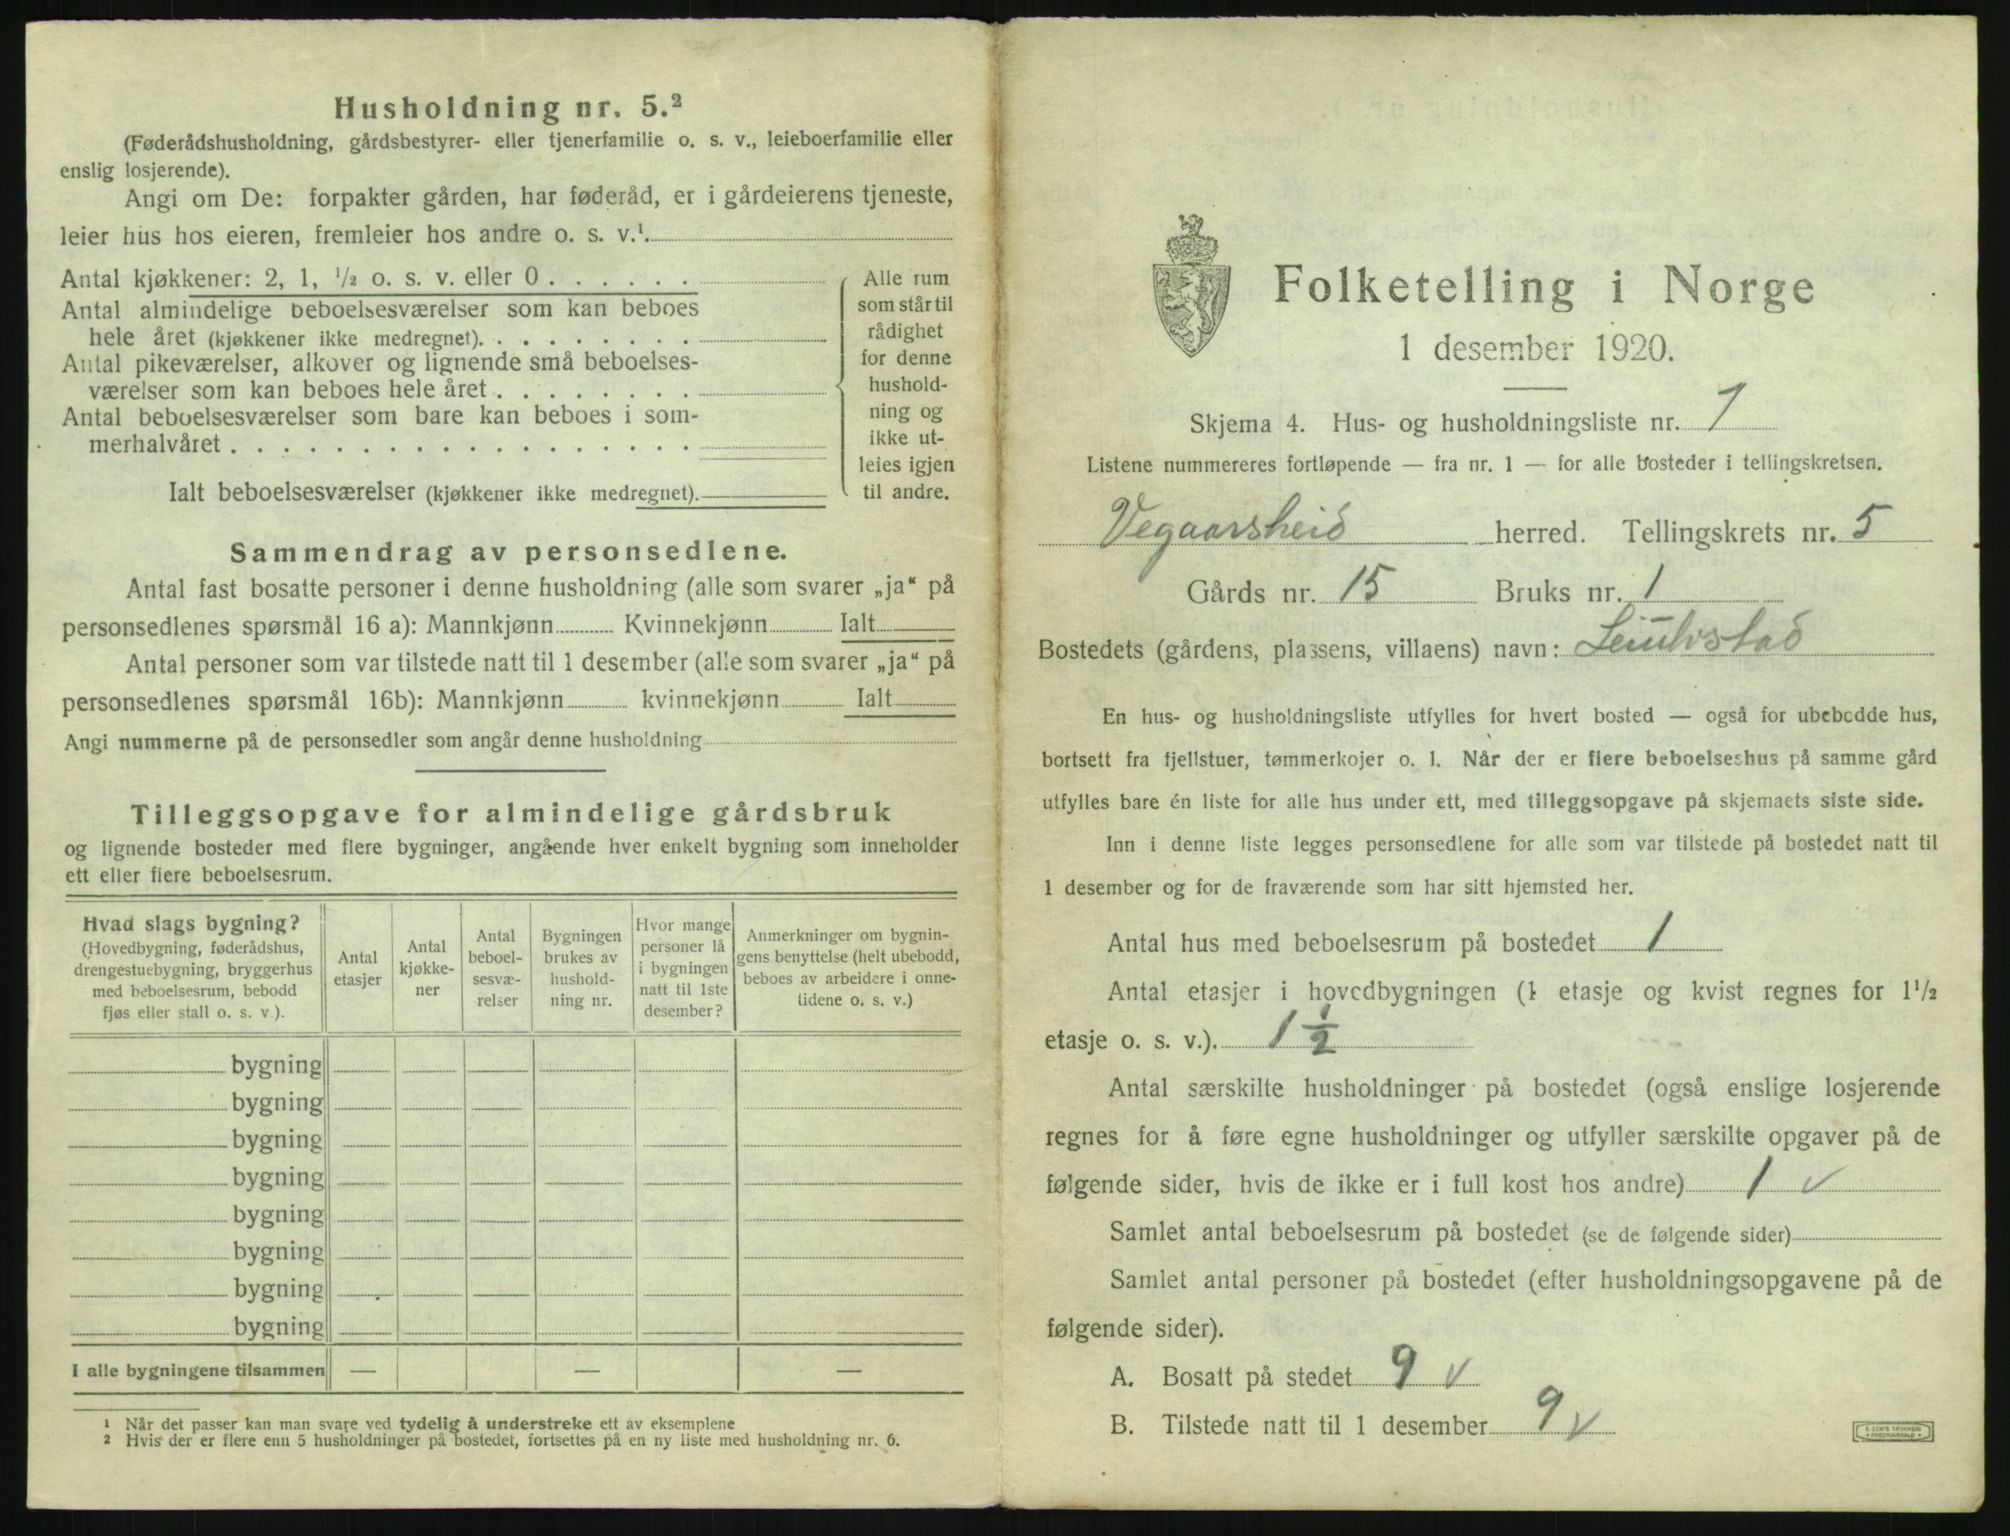 Husholdning nr. 5.²
(Føderådshusholdning, gårdsbestyrer- eller tjenerfamilie o. s. v., leieboerfamilie eller
enslig losjerende).
Angi om De: forpakter gården, har føderåd, er i gårdeierens tjeneste,
leier hus hos eieren, fremleier hos andre o. s. v.¹.
Antal kjøkkener: 2, 1, ½ o. s. v. eller 0 . . . . . .
Antal almindelige beboelsesværelser som kan beboes
hele året (kjøkkener ikke medregnet). . . . . . . . .
Antal pikeværelser, alkover og lignende små beboelses-
værelser som kan beboes hele året . . . . . . . .
Antal beboelsesværelser som bare kan beboes i som-
merhalvåret . . . . . . . . . . . . . . . . . .
Ialt beboelsesværelser (kjøkkener ikke medregnet).
Alle rum
som står til
rådighet
for denne
hushold-
ning og
ikke ut-
leies igjen
til andre.
Sammendrag av personsedlene.
Antal fast bosatte personer i denne husholdning (alle som svarer „ja“ på
personsedlenes spørsmål 16 a): Mannkjønn Kvinnekjønn Ialt
Antal personer som var tilstede natt til 1 desember (alle som svarer „ja“ på
personsedlenes spørsmål 16b): Mannkjønn kvinnekjønn Ialt
Angi nummerne på de personsedler som angår denne husholdning
Tilleggsopgave for almindelige gårdsbruk
og lignende bosteder med flere bygninger, angående hver enkelt bygning som inneholder
ett eller flere beboelsesrum.
Hvad slags bygning?
(Hovedbygning, føderådshus,
drengestuebygning, bryggerhus
med beboelsesrum, bebodd
fjøs eller stall o. s. v ).
Antal
etasjer
Antal
kjøkke-
ner
Antal
beboel-
sesvæ-
relser
Bygningen
brukes av
hushold-
ning nr.
Hvor mange
personer lå
i bygningen
natt til 1ste
desember?
Anmerkninger om bygnin-
gens benyttelse (helt ubebodd,
beboes av arbeidere i onne-
tidene o. s. v.)
bygning
bygning
bygning
bygning
bygning
bygning
bygning
bygning
I alle bygningene tilsammen — — —
¹ Når det passer kan man svare ved tydelig å understreke ett av eksemplene
² Hvis der er flere enn 5 husholdninger på bostedet, fortsettes på en ny liste med husholdning nr. 6.
Folketelling i Norge
1 desember 1920.
Skjema 4. Hus- og husholdningsliste nr. 7
Listene nummereres fortløpende — fra nr. 1 — for alle bosteder i tellingskretsen.
Vegaarsheid herred. Tellingskrets nr. 5
Gårds nr. 15 Bruks nr. 1
Bostedets (gårdens, plassens, villaens) navn:
En hus- og husholdningsliste utfylles for hvert bosted — også for ubebodde hus,
bortsett fra fjellstuer, tømmerkojer o. l. Når der er flere beboelseshus på samme gård
utfylles bare én liste for alle hus under ett, med tilleggsopgave på skjemaets siste side.
Inn i denne liste legges personsedlene for alle som var tilstede på bostedet natt til
1 desember og for de fraværende som har sitt hjemsted her.
Antal hus med beboelsesrum på bostedet 1
Antal etasjer i hovedbygningen (1 etasje og kvist regnes for 1½
etasje o. s. v.). 1 ½
Antal særskilte husholdninger på bostedet (også enslige losjerende
regnes for å føre egne husholdninger og utfyller særskilte opgaver på de
følgende sider, hvis de ikke er i full kost hos andre) 1 ✓
Samlet antal beboelsesrum på bostedet (se de følgende sider)
Samlet antal personer på bostedet (efter husholdningsopgavene på de
følgende sider).
A. Bosatt på stedet 9 ✓
B. Tilstede natt til 1 desember 9 ✓